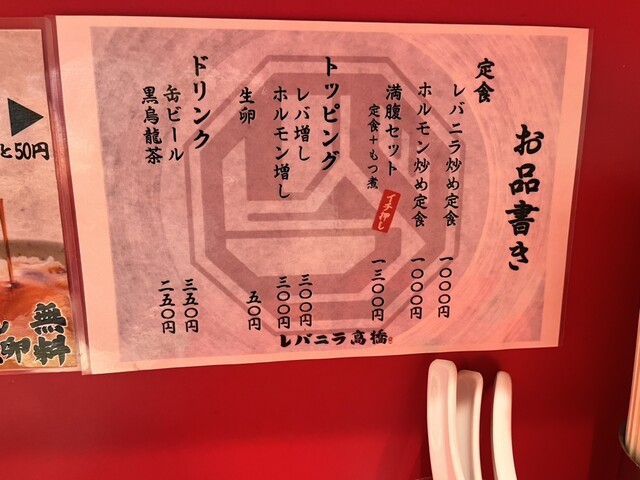 お品書き
定食
レバニラ炒め定食 一〇〇〇円
ホルモン炒め定食 一〇〇〇円
満腹セット 一三〇〇円
定食+もつ煮
イチ押し
トッピング
レバ増し 三〇〇円
ホルモン増し 三〇〇円
生卵 五〇円
ドリンク
缶ビール 三五〇円
黒烏龍茶 二五〇円
レバニラ高橋
と50円
無料
卵